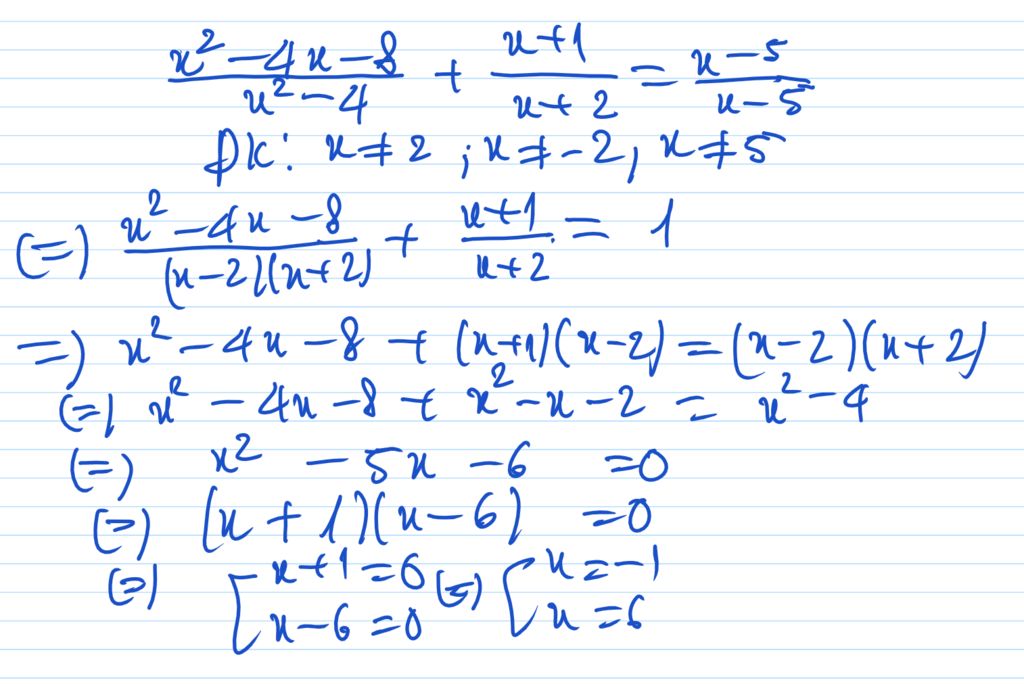 (x² - 4x - 8)/(x² - 4) + (x + 1)/(x + 2) = (x - 5)/(x - 5)
ĐK: x ≠ 2 ; x ≠ -2, x ≠ 5
(=) (x² - 4x - 8)/((x - 2)(x + 2)) + (x + 1)/(x + 2) = 1
=) x² - 4x - 8 + (x + 1)(x - 2) = (x - 2)(x + 2)
(=) x² - 4x - 8 + x² - x - 2 = x² - 4
(=) x² - 5x - 6 = 0
(=) (x + 1)(x - 6) = 0
(=) [ x + 1 = 0 (=) [ x = -1
x - 6 = 0 x = 6